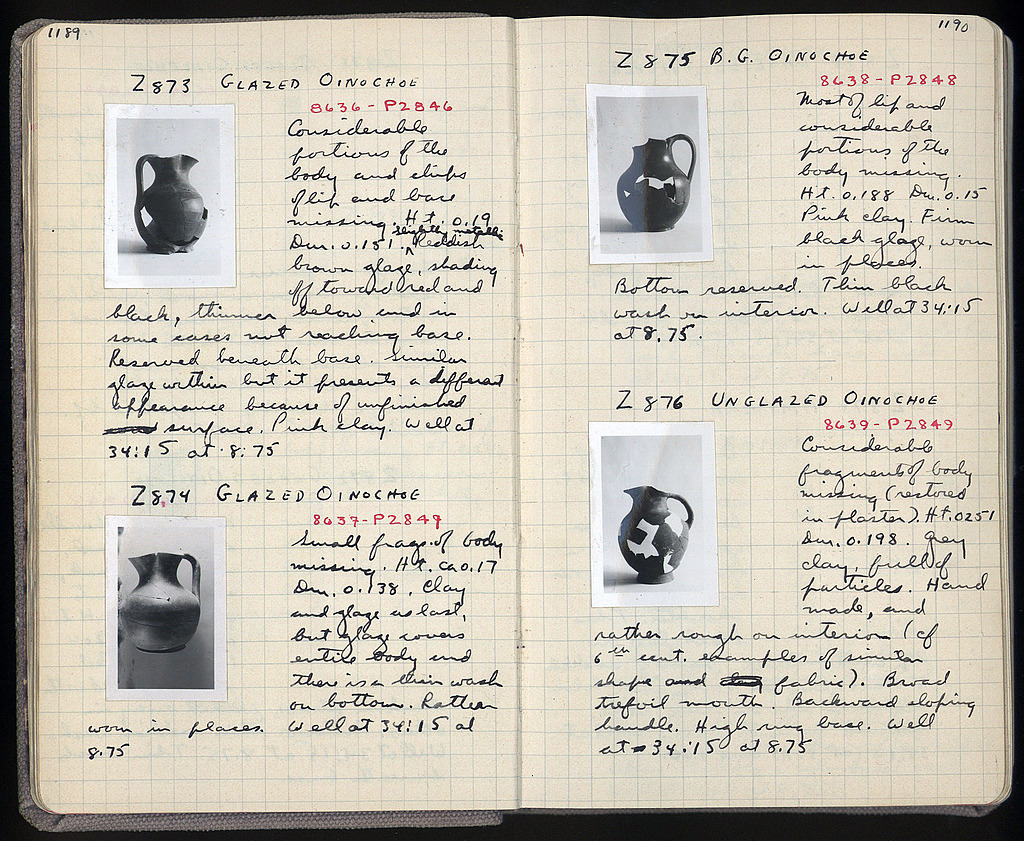 1189
Z873 GLAZED OINOCHOE
8636-P2846
Considerable
portions of the
body and chips
of lip and base
missing. Ht. 0.19
Dm. 0.151. slightly metallic Reddish
brown glaze, shading
off toward red and
black, thinner below and in
some cases not reaching base.
Reserved beneath base. Similar
glaze within but it presents a different
appearance because of unfinished
surface. Pink clay. Well at
34:15 at 8.75
Z874 GLAZED OINOCHOE
8637-P2847
Small frags. of body
missing. Ht. ca 0.17
Dm. 0.138. Clay
and glaze as last,
but glaze covers
entire body and
there is a thin wash
on bottom. Rather
worn in places. Well at 34:15 at
8.75
1190
Z875 B.G. OINOCHOE
8638-P2848
Most of lip and
considerable
portions of the
body missing.
Ht. 0.188 Dm. 0.15
Pink clay. Firm
black glaze, worn
in places.
Bottom reserved. Thin black
wash on interior. Well at 34:15
at 8.75.
Z876 UNGLAZED OINOCHOE
8639-P2849
Considerable
fragments of body
missing (restored
in plaster). Ht. 0251
Dm. 0.198. Grey
clay, full of
particles. Hand
made, and
rather rough on interior (cf
6th cent. examples of similar
shape and fabric). Broad
trefoil mouth. Backward sloping
handle. High ring base. Well
at 34:15 at 8.75